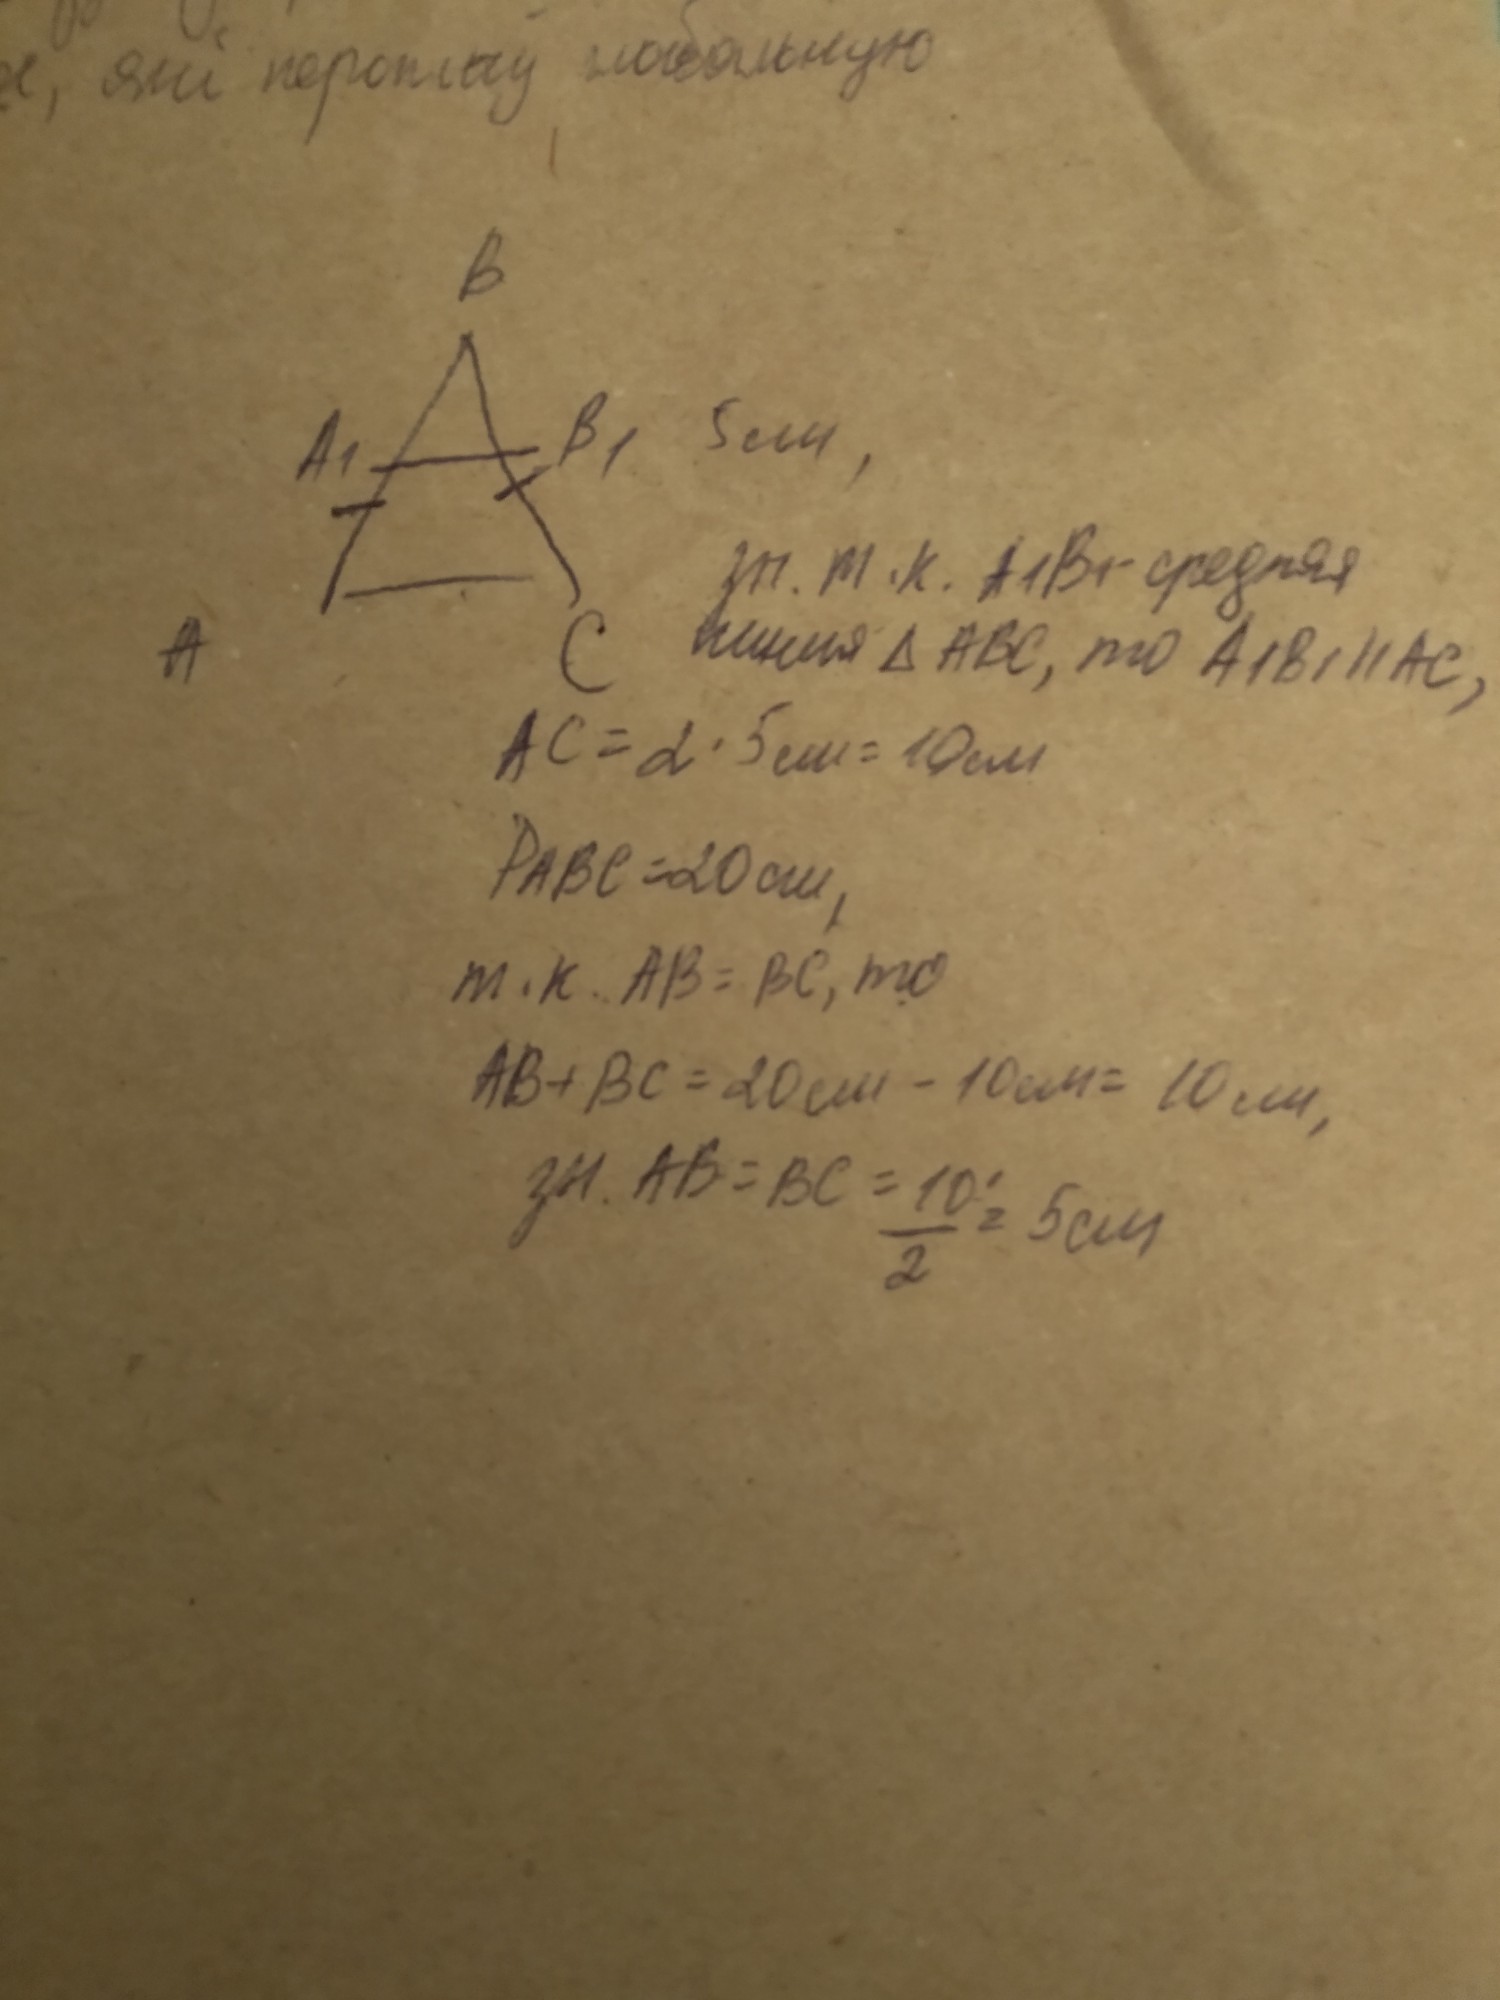 які
B
A1 B1 5см,
зн. т.к. A1B1- средняя
A C линия Δ ABC, то A1B1 || AC,
AC = 2 · 5см = 10см
PABC = 20см,
т.к. AB = BC, то
AB + BC = 20см - 10см = 10см,
зн. AB = BC = 10/2 = 5см